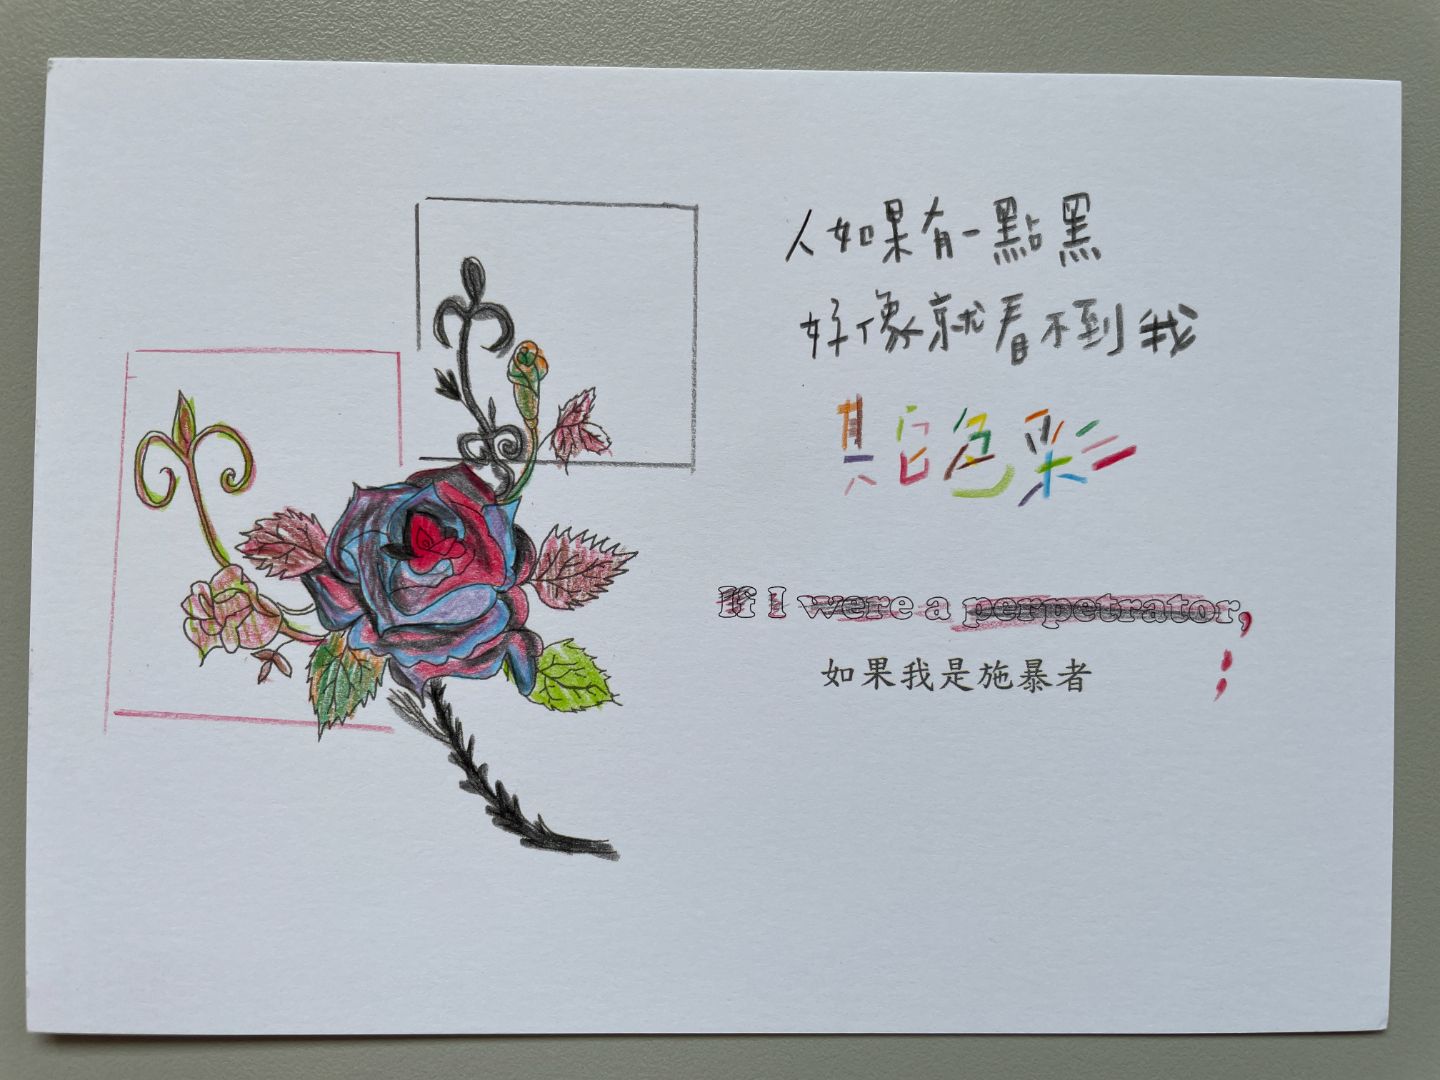 人如果有一點黑
好像就看不到我
其它色彩
If I were a perpetrator,
如果我是施暴者